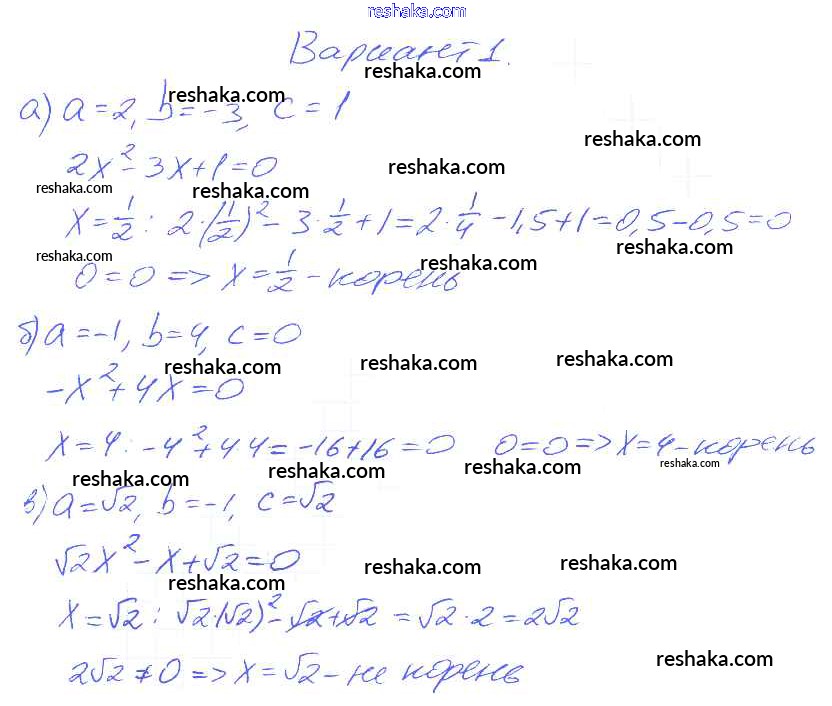 reshaka.com
Вариант 1.
reshaka.com
а) a=2, b=-3, c=1
reshaka.com
reshaka.com
2x²-3x+1=0
reshaka.com
reshaka.com
reshaka.com
x=1/2: 2·(1/2)²-3·1/2+1=2·1/4-1,5+1=0,5-0,5=0
reshaka.com
reshaka.com
0=0=>x=1/2-корень
reshaka.com
б) a=-1, b=4, c=0
reshaka.com
reshaka.com
reshaka.com
-x²+4x=0
x=4: -4²+4·4=-16+16=0 0=0=>x=4-корень
reshaka.com
reshaka.com
reshaka.com
reshaka.com
в) a=√2, b=-1, c=√2
√2x²-x+√2=0
reshaka.com
reshaka.com
reshaka.com
x=√2: √2·(√2)²-√2+√2=√2·2=2√2
2√2≠0=>x=√2-не корень
reshaka.com